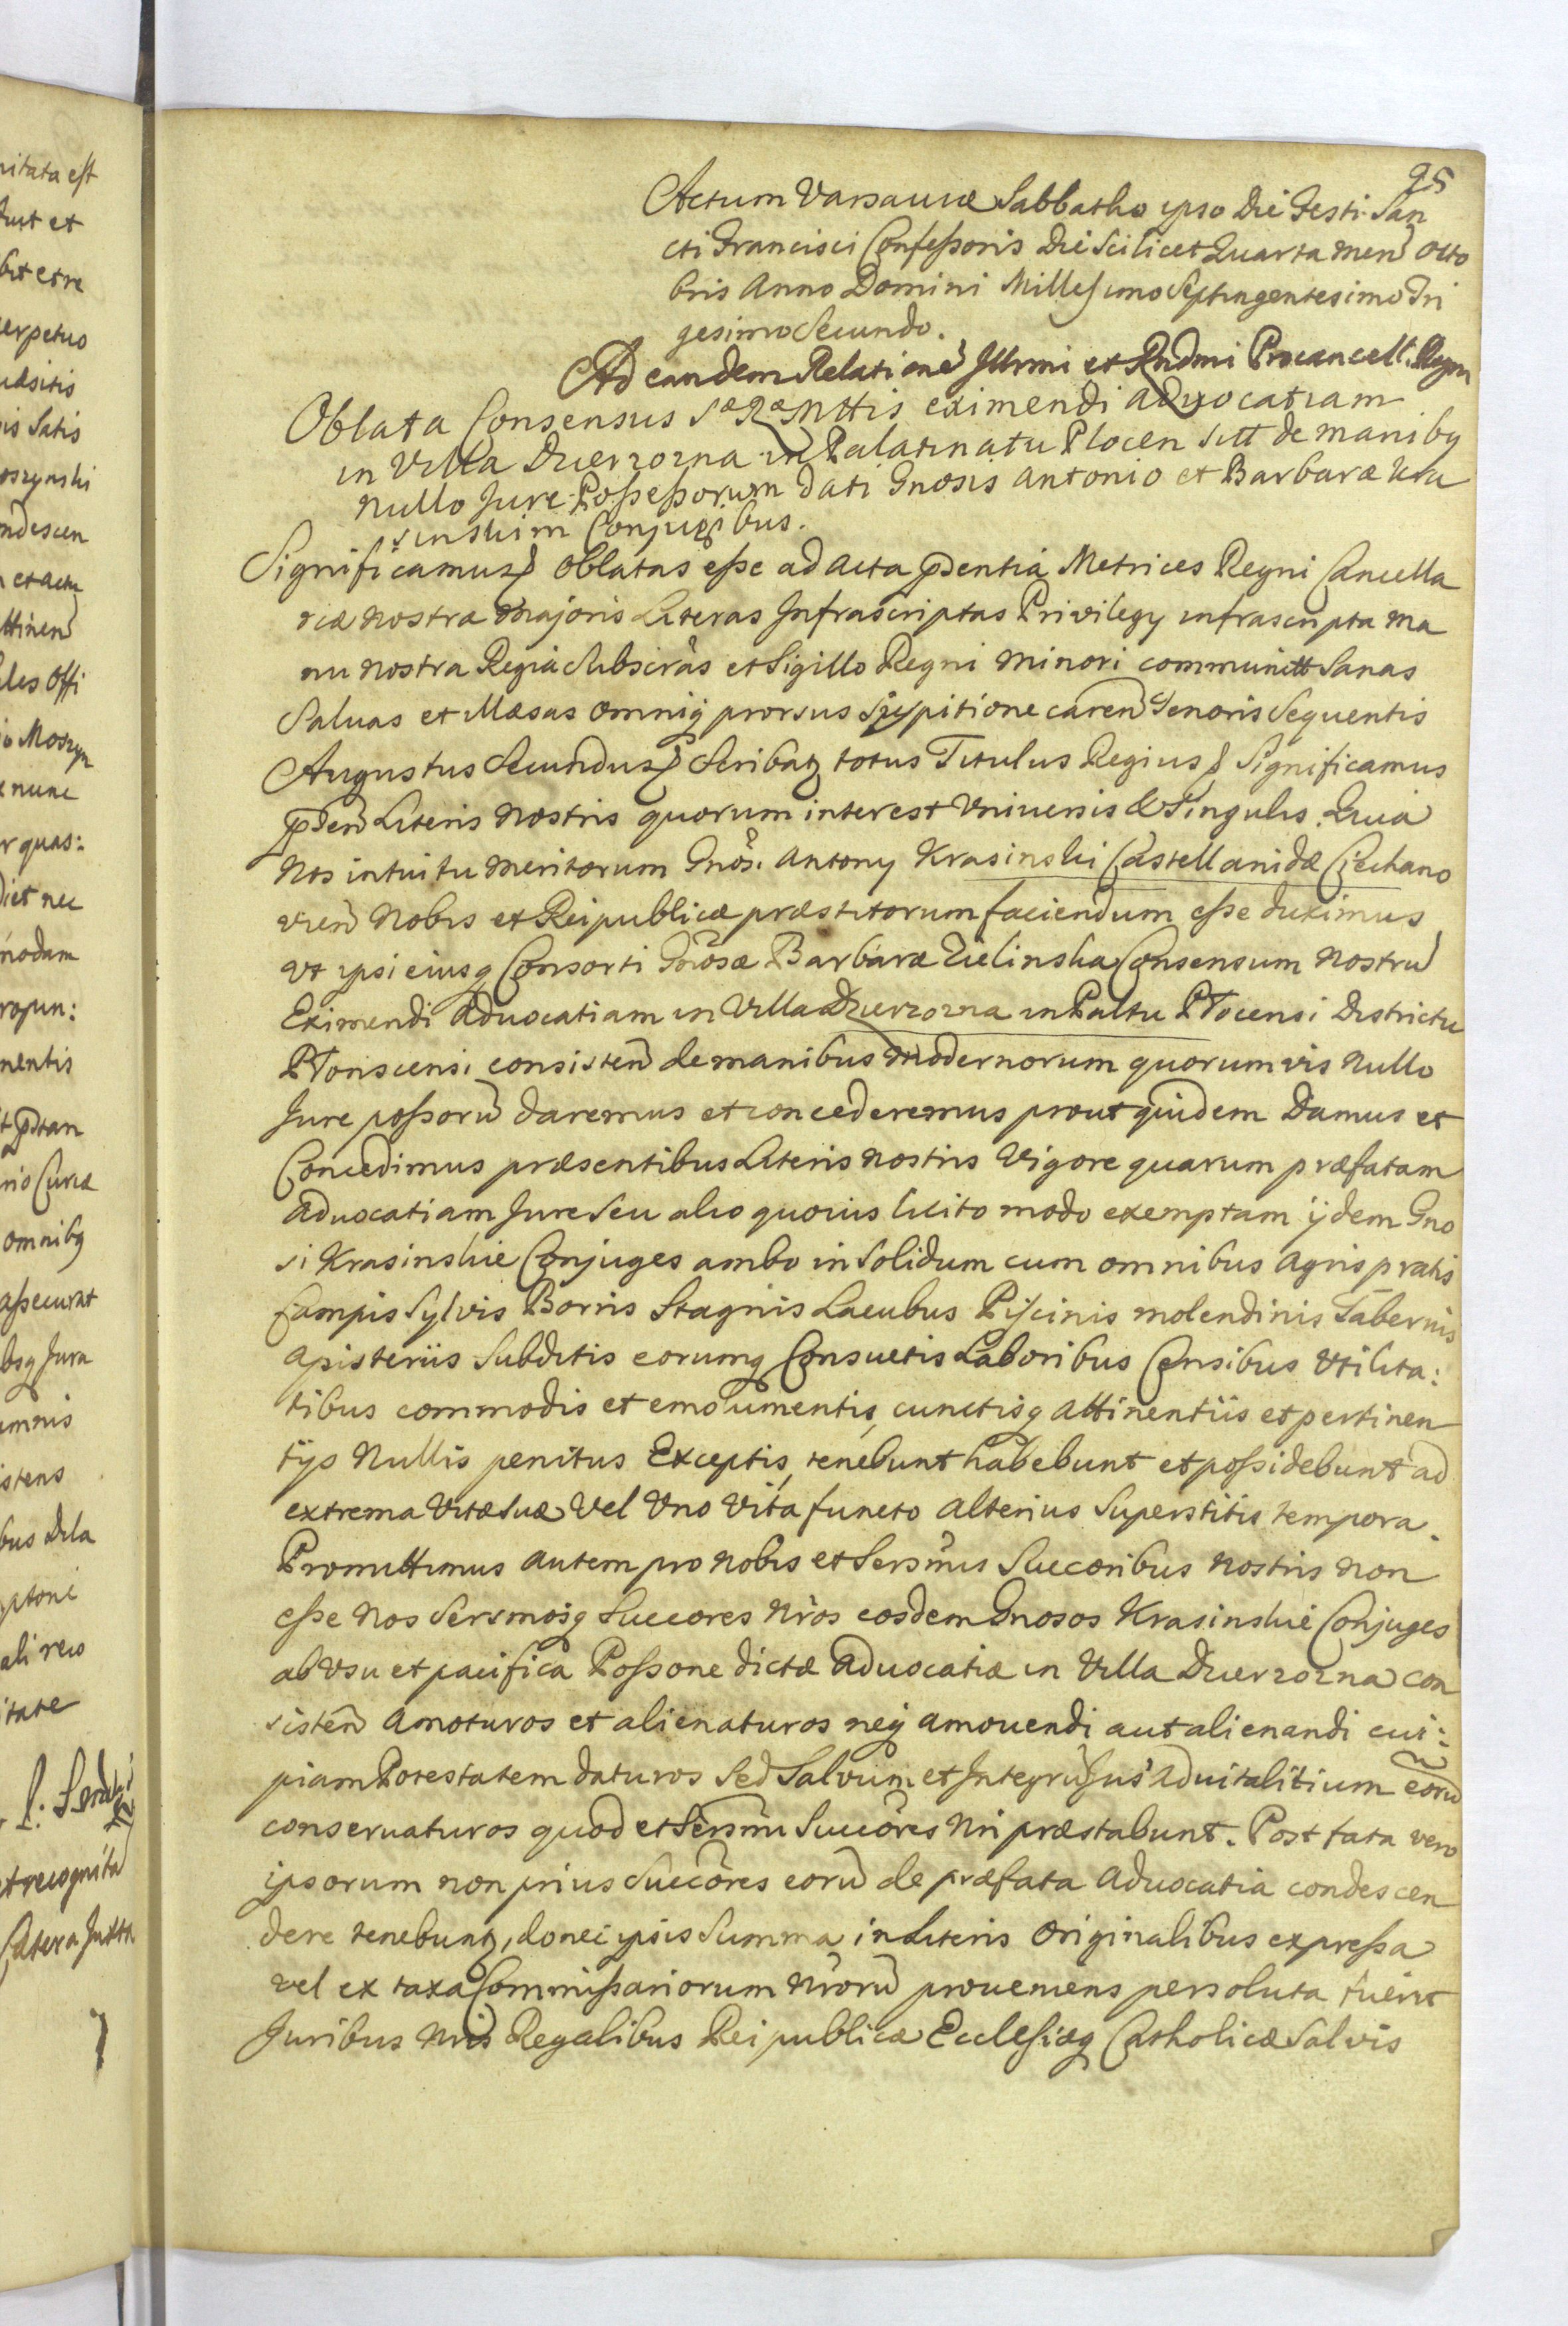 95
Actum Varsaviæ Sabbatho ipso Die Festi San
cti Francisci Confessoris Die Scilicet Quarta men Octo
bris Anno Domini Millesimo Septingentesimo Tri
gesimo Secundo.
Ad eandem Relatione Illrmi et Rndmi Procancell. Regni
Oblata Consensus Sæ Ræ Mttis eximendi advocatiam
in Villa Dzierzozna in Palatinatu Plocen Sitt de maniby
nullo Jure Possessorum dati Gnosis Antonio et Barbaræ Kra
sinskim Conjugibus.
Significamus Oblatas esse ad Acta pdentia Metrices Regni Cancella
riæ nostræ Majoris Literas Infrascriptas Privilegy infrascripta ma
nu nostra Regia Subscras et Sigillo Regni minori communitt Sanas
Salvas et Illæsas omniq prorsus Suspitione caren Tenoris Sequentis
Augustus Secundus Scribatz totus Titulus Regius Significamus
pden Literis Nostris quorum interest Universis & Singulis. Quia
Nos intuitu meritorum Gnosi Antony Krasinski Castellanidæ Ciechano
vien Nobis et Reipublicæ præstitorum faciendum esse duximus
vt ipsi eiusq Consorti Gnosæ Barbaræ Zielinska Consensum Nostru
Eximendi Advocatiam in Villa Dzierzozna in Paltu Plocensi Districtu
Plonscensi consisten de manibus modernorum quorumvis nullo
Jure possoru daremus et concederemus prout quidem Damus et
Concedimus præsentibus Literis nostris Vigore quarum præfatam
advocatiam Jure Seu alio quovis licito modo exemptam ijdem Gno
si Krasinskie Conjuges ambo in Solidum cum omnibus Agris pratis
Campis Sylvis Borris Stagnis Lacubus Piscinis molendinis Tabernis
apisteriis Subditis eorumq Consuetis Laboribus Censibus Utilita:
tibus commodis et emolumentis cunctisq attinentiis et pertinen
tijs Nullis penitus Exceptis, tenebunt habebunt et possidebunt ad
extrema Vitæ Suæ Vel Uno Vita functo alterius Superstitis tempora.
Promittimus autem pro Nobis et Sersmis Succoribus nostris non
esse Nos Sersmosq Succores Nros eosdem Gnosos Krasinskie Conjuges
ab Usu et pacifica Possone dictæ Advocatiæ in Villa Dzierzozna con
sisten Amoturos et alienaturos neq amovendi aut alienandi cui:
piam Potestatem daturos Sed Salvum et Integru Jus Advitalitium eoru
conservaturos quod et Sersmi Succores Nri præstabunt. Post fata vero
ipsorum non prius Succores eoru de præfata Advocatia condescen
dere tenebuntz, donec ipsis Summa in Literis Originalibus expressa
vel ex taxa Commissariorum Nroru proveniens persoluta fuerit
Juribus Nris Regalibus Reipublicæ Ecclesiæq Catholicæ Salvis